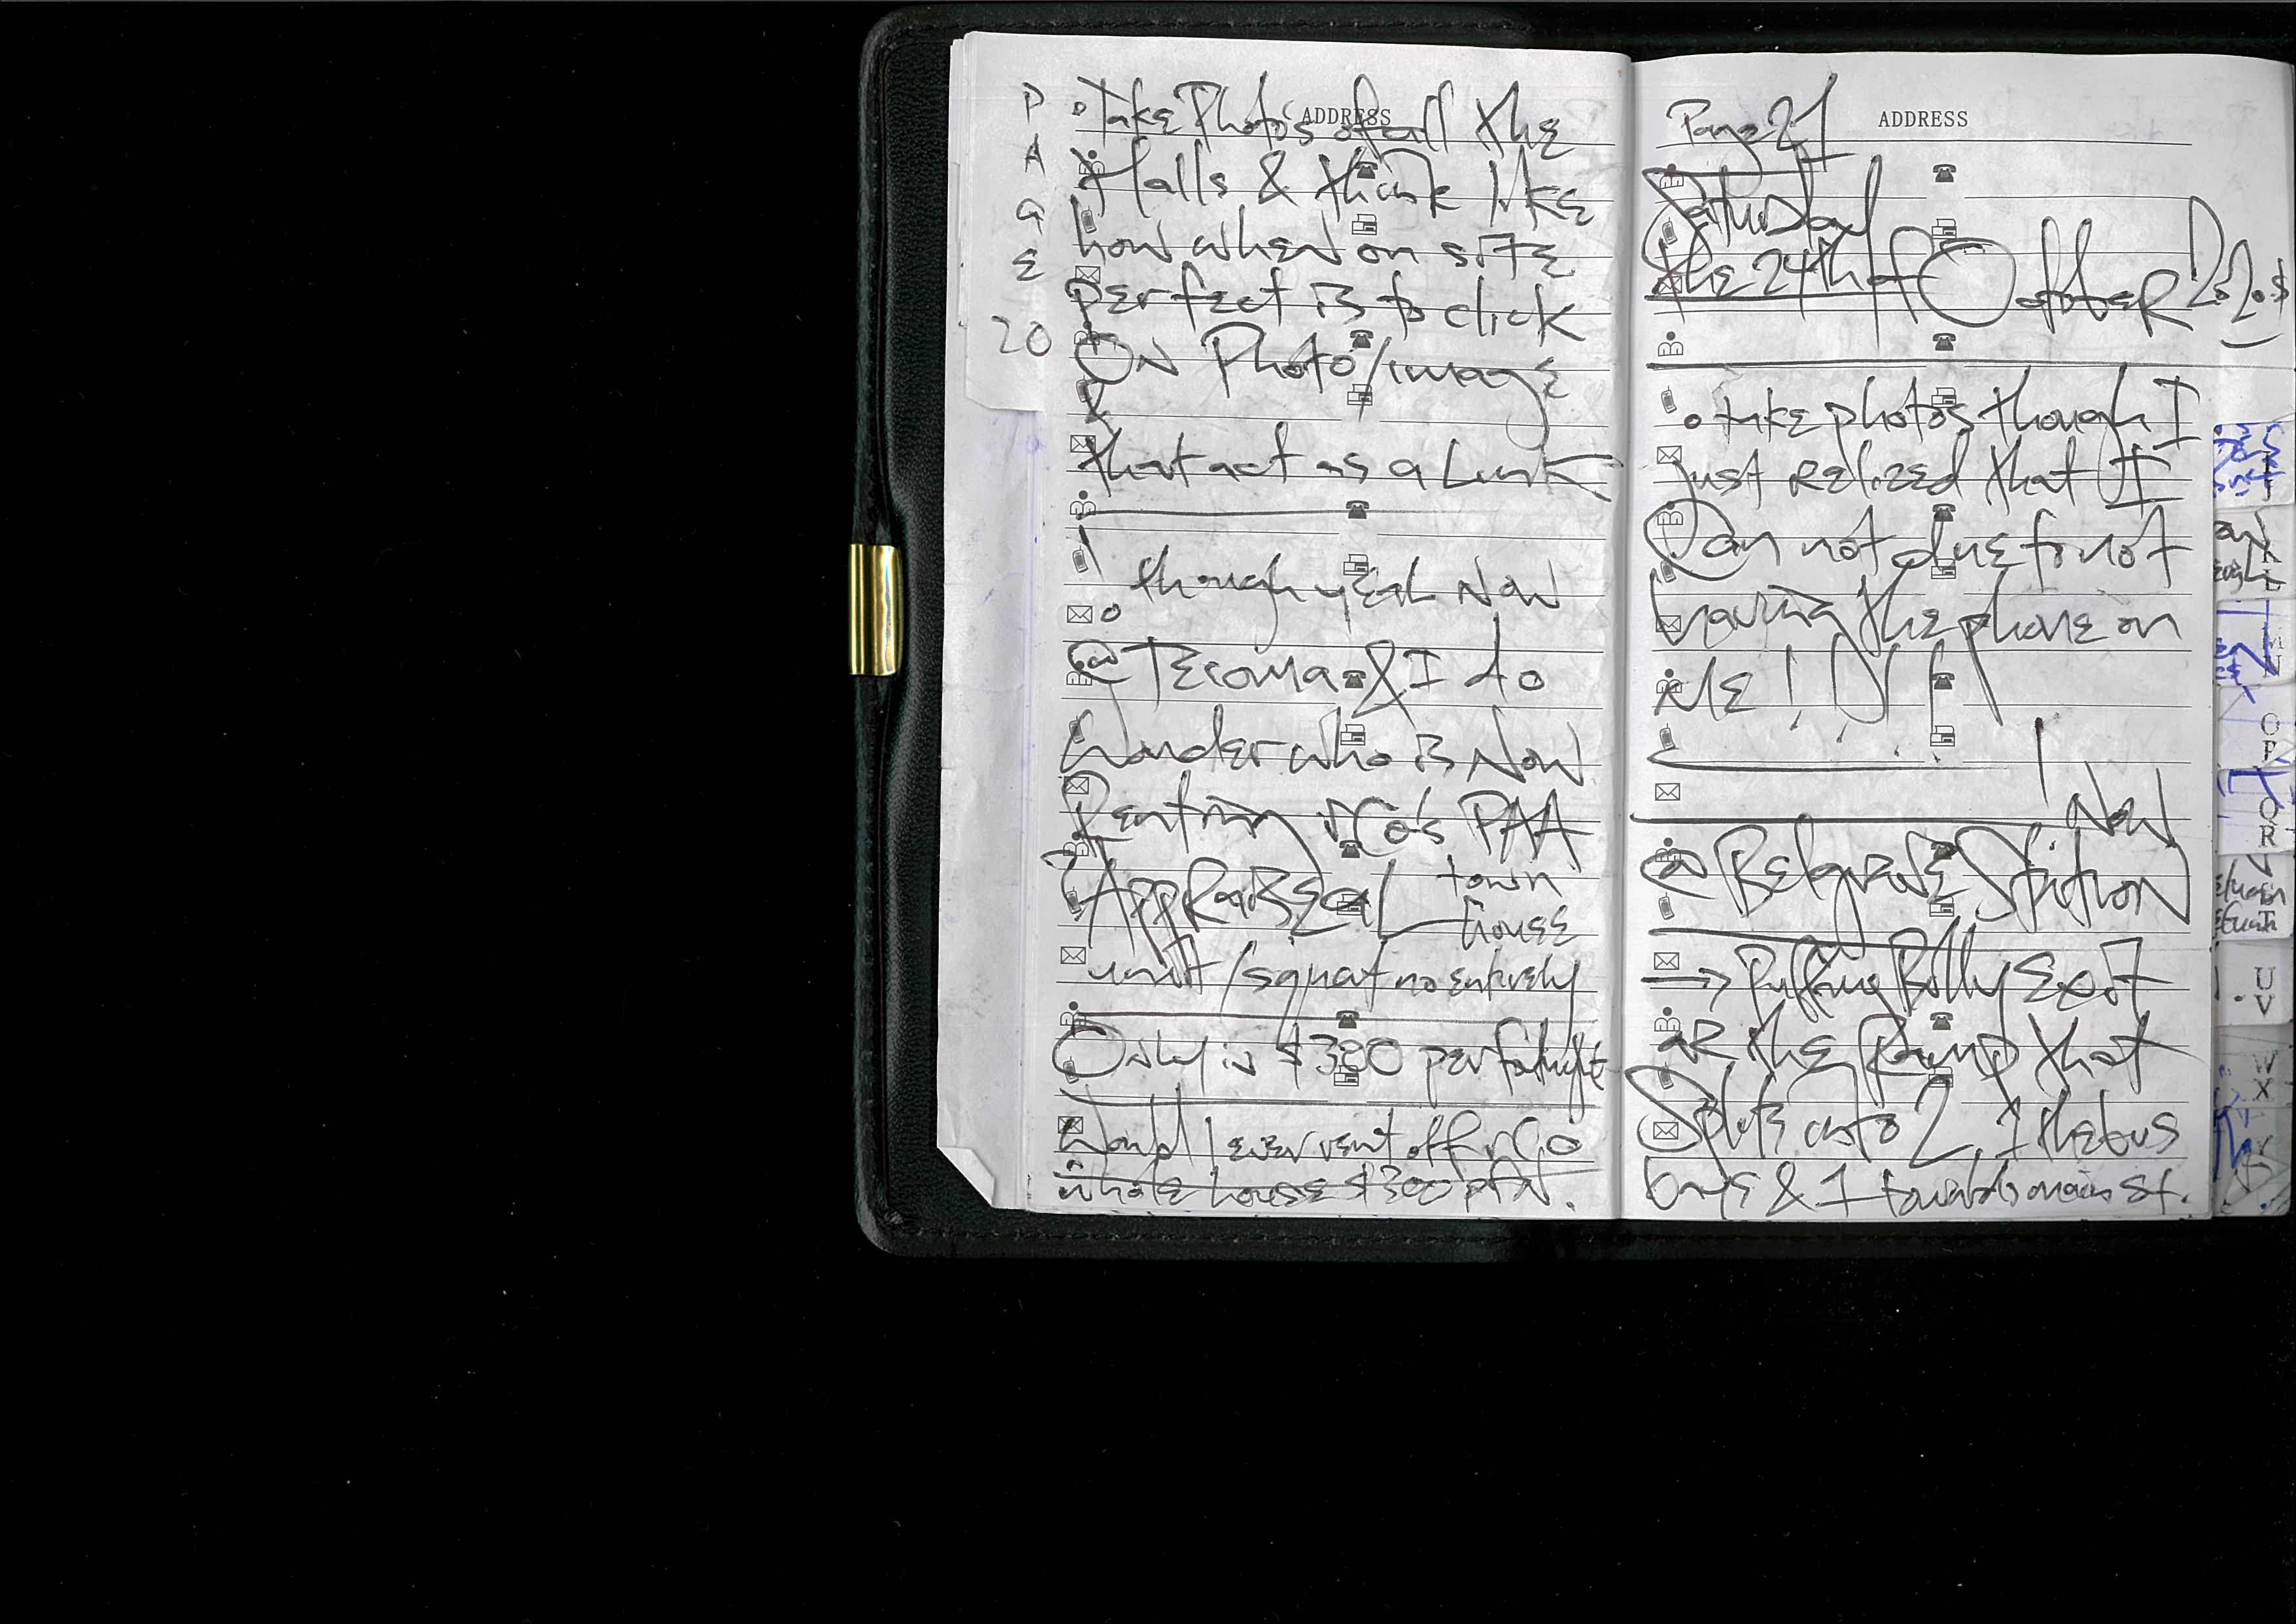 PAGE 20
ADDRESS
Take Photo's of all the
Halls & think like
how when on site
perfect is to click
On Photo/image
&
that act as a Link
though yeah Now
@ Tecoma & I do
Wonder who is Now
Renting rCo's PAA
town
house
unit/squat no entirely
Only is $380 per
Would I ever rent off rCo
whole house $300 pfn.
Page 21
ADDRESS
Saturday
the 24th of October
take photos though I
just relized that I
Can not due to not
having the phone on
Me!
Now
@ Belgrave Station
→ Puffing Billy Exit
or the Ramp that
Splits into 2, 1 the bus
bays & 1 towards main st.
O
R
U
V
W
X